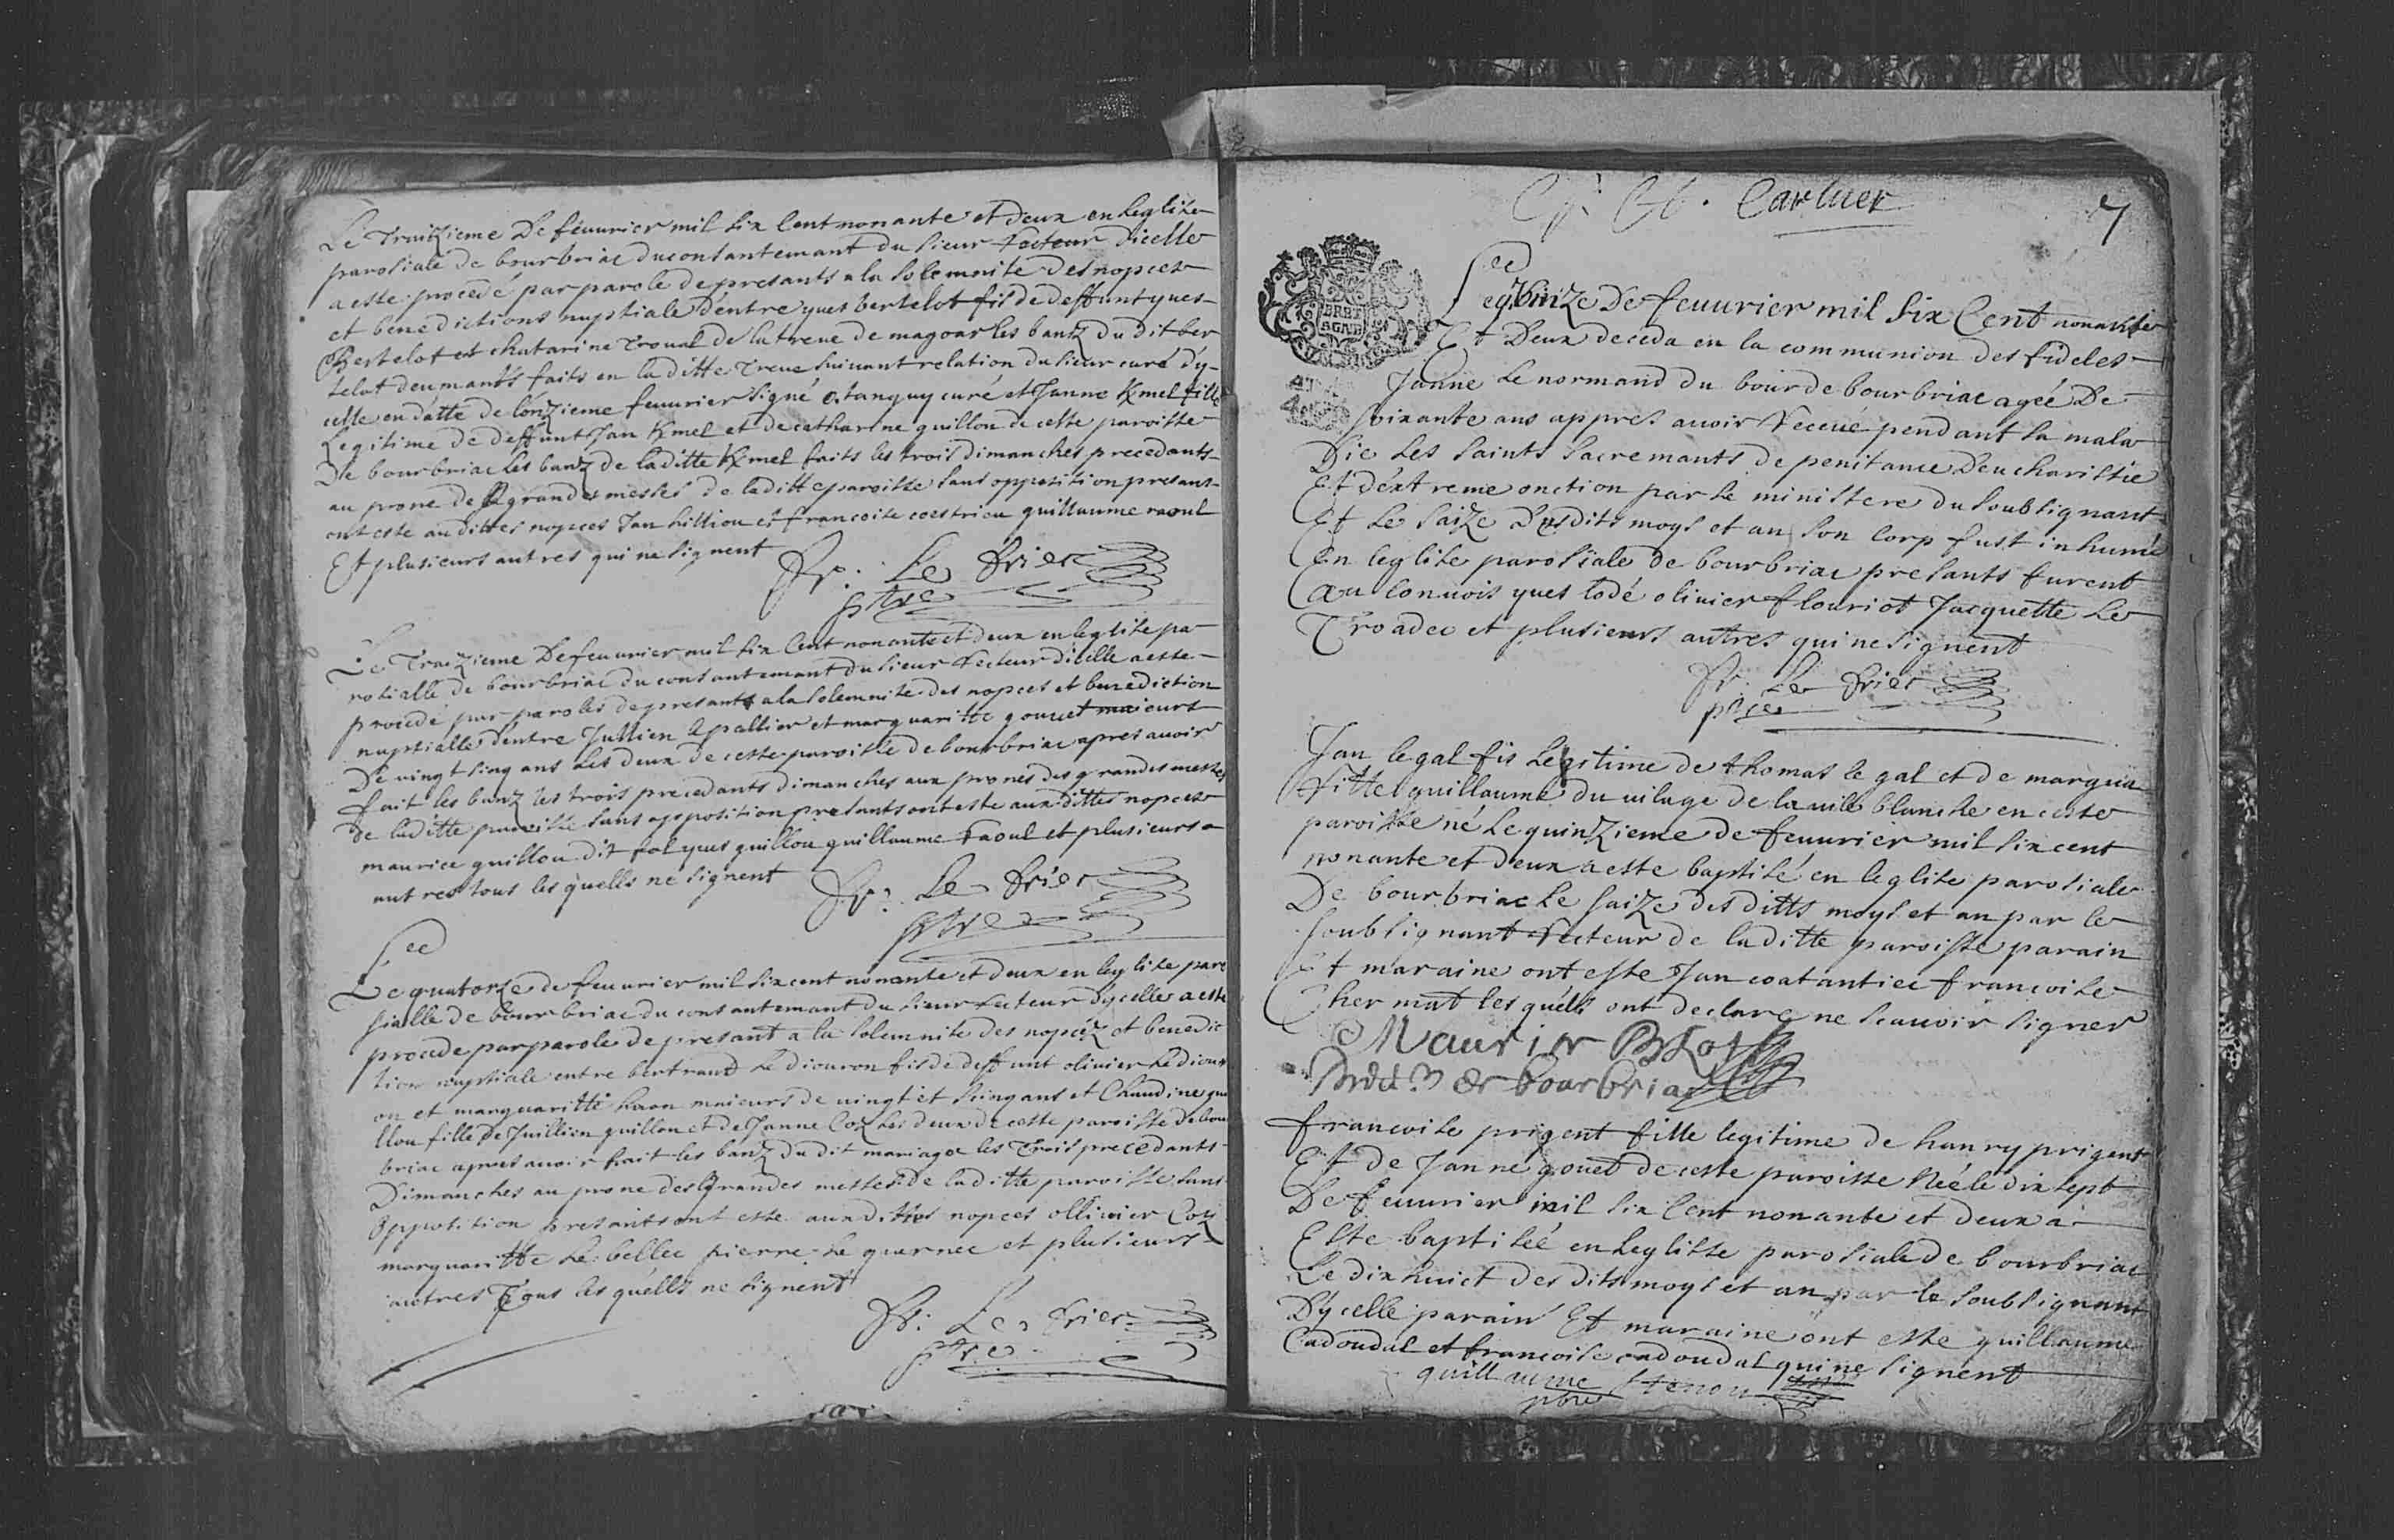 Le Traizieme De feuurier mil six Cent nonante et deux en leglise
parosiale de bourbriac du consantemant du sieur Recteur dicelle
a este procedé par parole de presants a la solemnite des nopces
et benedictions nuptiale d'entre yues bertelot fis de deffunt yues
Bertelot et chatarine troual de la treue de magoar les bantz du dit ber
telot deumants faits en la ditte treue suiuant relation du sieur curé dy-
celle en datte de lonzieme feuurier signé o. tanguy curé et Janne Kmel fille
Legitime de deffunt Jan Kmel et de catharine guillou de cette paroisse
De bourbriac les banz de laditte Kmel faits les trois dimanches precedants
au prone de grandes messes de laditte paroisse sans opposition presants
ont este au dittes nopces Jan hilliou et francoise coestrieu guillaume raoul
Et plusieurs autres qui ne signent
Le drier
ptre
Le Traizieme De feuurier mil six Cent nonante et deux en leglise pa-
rosialle de bourbriac du consantemant du sieur Recteur dicelle a este
procede par paroles de presants a la solemnite des nopces et benediction
nuptialle dentre Jullien le pallier et marguaritte gouuet maieurs
De vingt sinq ans les deux de ceste paroisse de bourbriac apres auoir
fait les banz les trois precedants dimanches aux prones des grandes messes
de laditte paroisse sans opposition presants ont este aux dittes nopces
maurice guillou dit yues guillou guillaume Raoul et plusieurs
autres tous les quells ne signent
Le drier
ptre
Le quatorse de feuurier mil six cent nonante et deux en leglise paro
sialle de bourbriac du consantemant du sieur recteur dycelle a este
procede par parole de presant a la solemnite des nopcez et benedic
tion nuptiale entre bertrand Le diouron fis de deffunt oliuier Le diour
on et marguaritte haon maieurs de uingt et sinq ans et Claudine gui
llou fille de Juillien guillou et de Janne Coz les deux de cette paroisse de bour
briac apres auoir fait les banz du dit mariage les trois precedants
Dimanches au prone des Grandes messes de laditte paroisse sans
opposition presants ont este aux dittes nopces olliuier Coz
marguaritte Le bellec pierre Le guernec et plusieurs
autres Tous les quells ne signent
Le drier
ptre
7
Le quinze De feuurier mil six Cent nonante
Et Deux deceda en la communion des fideles
Janne Le normand du bour de bourbriac agée De
soixante ans appres auoir Receue pendant sa mala
Die les saints sacremants de penitance Deucharistie
Et dextreme onction par le ministere du soubsignant
Et le saize desdits moys et an son corp fust inhumé
En leglise parosiale de bourbriac presants furent
Au conuois yues todé oliuier flouriot Jacquette Le
Troadec et plusieurs autres qui ne signent
Le drier
ptre
Jan le gal fis Legitime de thomas le gal et de margua
ritte guillaume du uilage de la uile blanche en ceste
paroisse né Le quinzieme de feuurier mil six cent
nonante et deux a este baptisé en leglise parosiale
De bourbriac Le saize des ditts moys et an par le
soubsignant Recteur de laditte paroisse parain
Et maraine ont este Jan coatantiec francoise
thermat les quells ont declare ne scauoir signer
Maurice
de bourbriac
francoise prigent fille legitime de hanry prigent
Et de Janne gouet de ceste paroisse Née le dix sept
De feuurier mil six Cent nonante et deux a
Este baptisée en leglisse parosiale de bourbriac
Le dix huict des dits moys et an par le soubsignant
Dycelle parain Et maraine ont este guillaume
Cadoudal et francoise cadoudal qui ne signent
guillaume
pbre